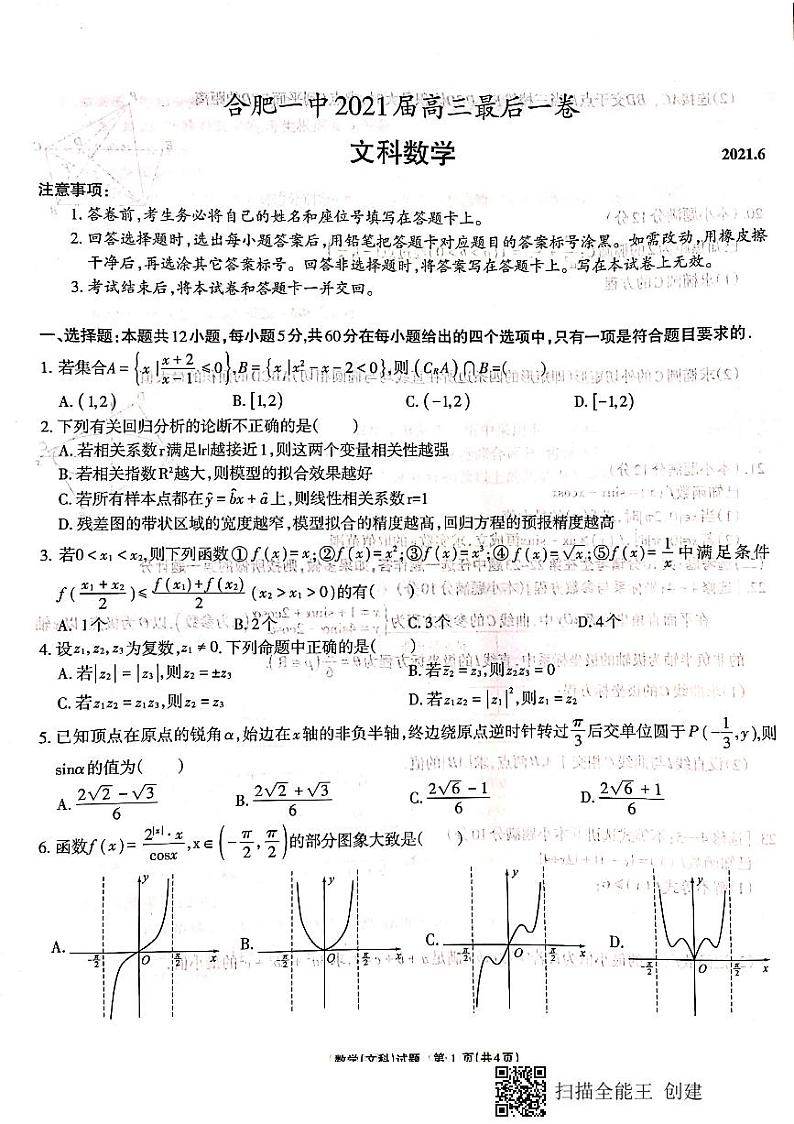 合肥一中2021届高三最后一卷
文科数学
2021.6
注意事项:
1. 答卷前,考生务必将自己的姓名和座位号填写在答题卡上。
2. 回答选择题时,选出每小题答案后,用铅笔把答题卡对应题目的答案标号涂黑。如需改动,用橡皮擦
干净后,再选涂其它答案标号。回答非选择题时,将答案写在答题卡上。写在本试卷上无效。
3. 考试结束后,将本试卷和答题卡一并交回。
一、选择题:本题共12小题,每小题5分,共60分在每小题给出的四个选项中,只有一项是符合题目要求的.
1. 若集合A={x|(x+2)/(x-1)≤0},B={x|x²-x-2<0},则(C_R A)∩B=( )
A. (1,2) B. [1,2) C. (-1,2) D. [-1,2)
2. 下列有关回归分析的论断不正确的是( )
A. 若相关系数r满足|r|越接近1,则这两个变量相关性越强
B. 若相关指数R²越大,则模型的拟合效果越好
C. 若所有样本点都在ŷ=b̂x+â上,则线性相关系数r=1
D. 残差图的带状区域的宽度越窄,模型拟合的精度越高,回归方程的预报精度越高
3. 若0<x₁<x₂,则下列函数①f(x)=x;②f(x)=x²;③f(x)=x³;④f(x)=√x;⑤f(x)=1/x中满足条件
f((x₁+x₂)/2)≤(f(x₁)+f(x₂))/2 (x₂>x₁>0)的有( )
A. 1个 B. 2个 C. 3个 D. 4个
4. 设z₁,z₂,z₃为复数,z₁≠0.下列命题中正确的是( )
A. 若|z₂|=|z₃|,则z₂=±z₃ B. 若z̄₂=z₃,则z₂z₃=0
C. 若z₁z₂=z₁z₃,则z₂=z₃ D. 若z₁z₂=|z₁|²,则z₁=z₂
5. 已知顶点在原点的锐角α,始边在x轴的非负半轴,终边绕原点逆时针转过π/3后交单位圆于P(-1/3,y),则
sinα的值为( )
A. (2√2-√3)/6 B. (2√2+√3)/6 C. (2√6-1)/6 D. (2√6+1)/6
6. 函数f(x)=(2^|x|·x)/cosx,x∈(-π/2,π/2)的部分图象大致是( )
A. y -π/2 O π/2 x B. y -π/2 O π/2 x C. y -π/2 O π/2 x D. y -π/2 O π/2 x
数学(文科)试题 第1页(共4页)
扫描全能王 创建